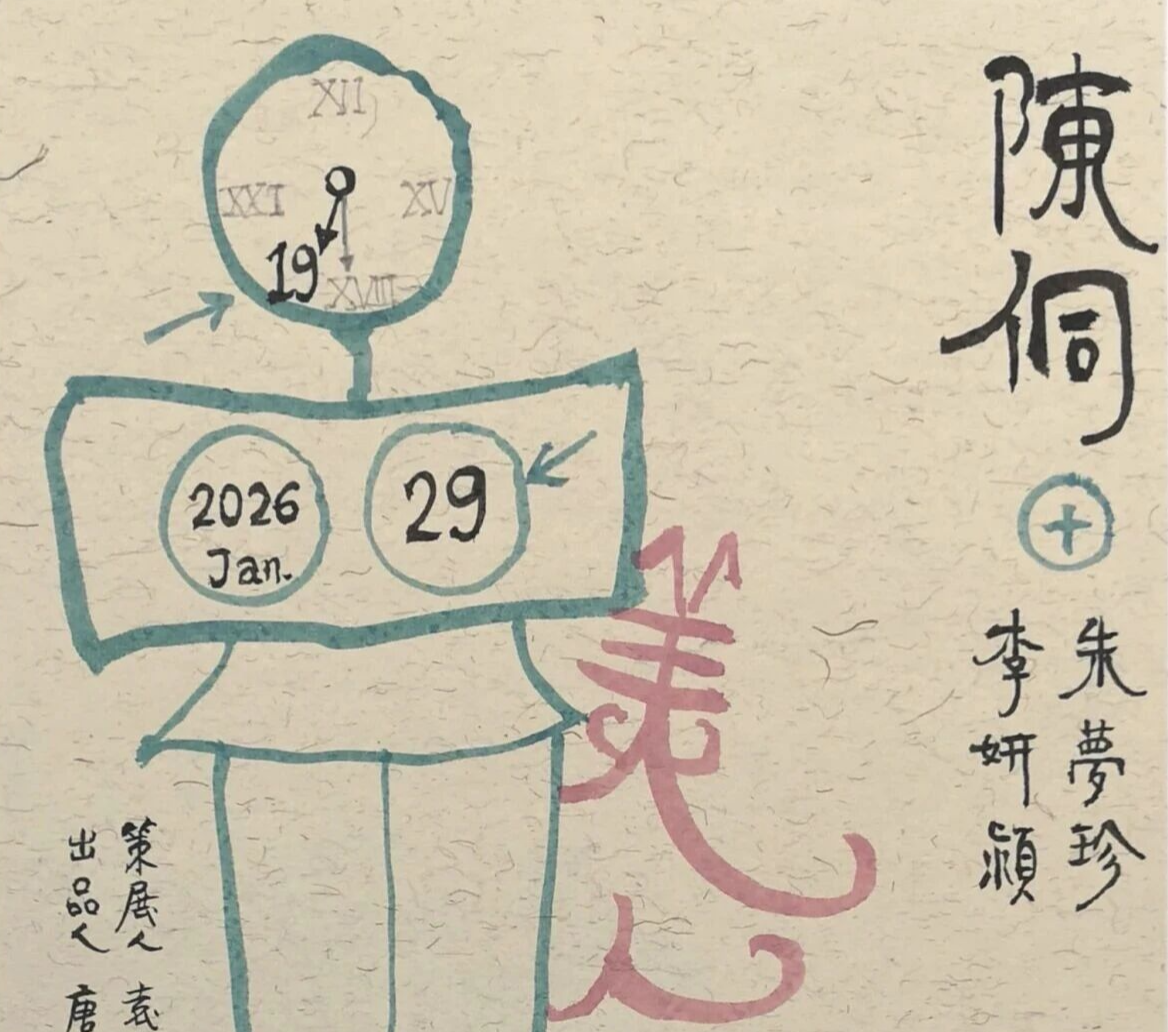 陳侗
+
朱夢珍
李妍潁
XII
XXI
XV
19
XVIII
2026
Jan.
29
策展人 袁
出品人 唐